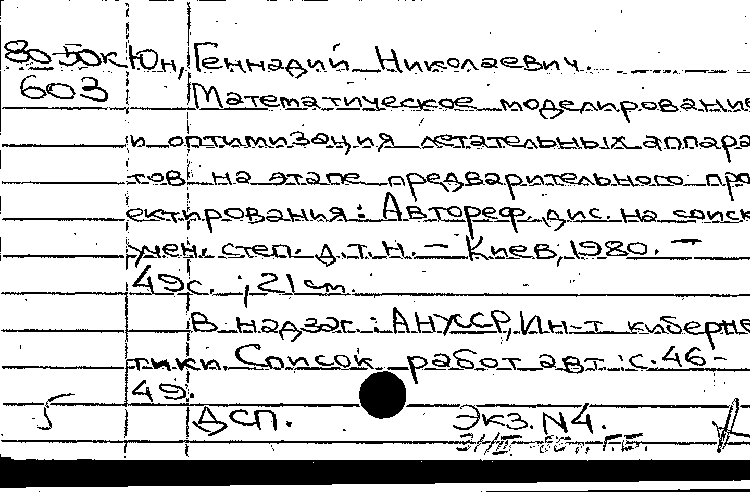 80-50к Юн, Геннадий Николаевич.
603 Математическое моделирование
и оптимизация летательных аппара
тов на этапе предварительного про
ектирования: Автореф. дис. на соиск
учен. степ. д.т.н. – Киев, 1980. –
49с. ; 21 см.
В надзаг.: АН УССР, Ин-т киберне
тики. Список работ авт.: с. 46-
49.
ДСП. Экз. N4.
Г.Б.